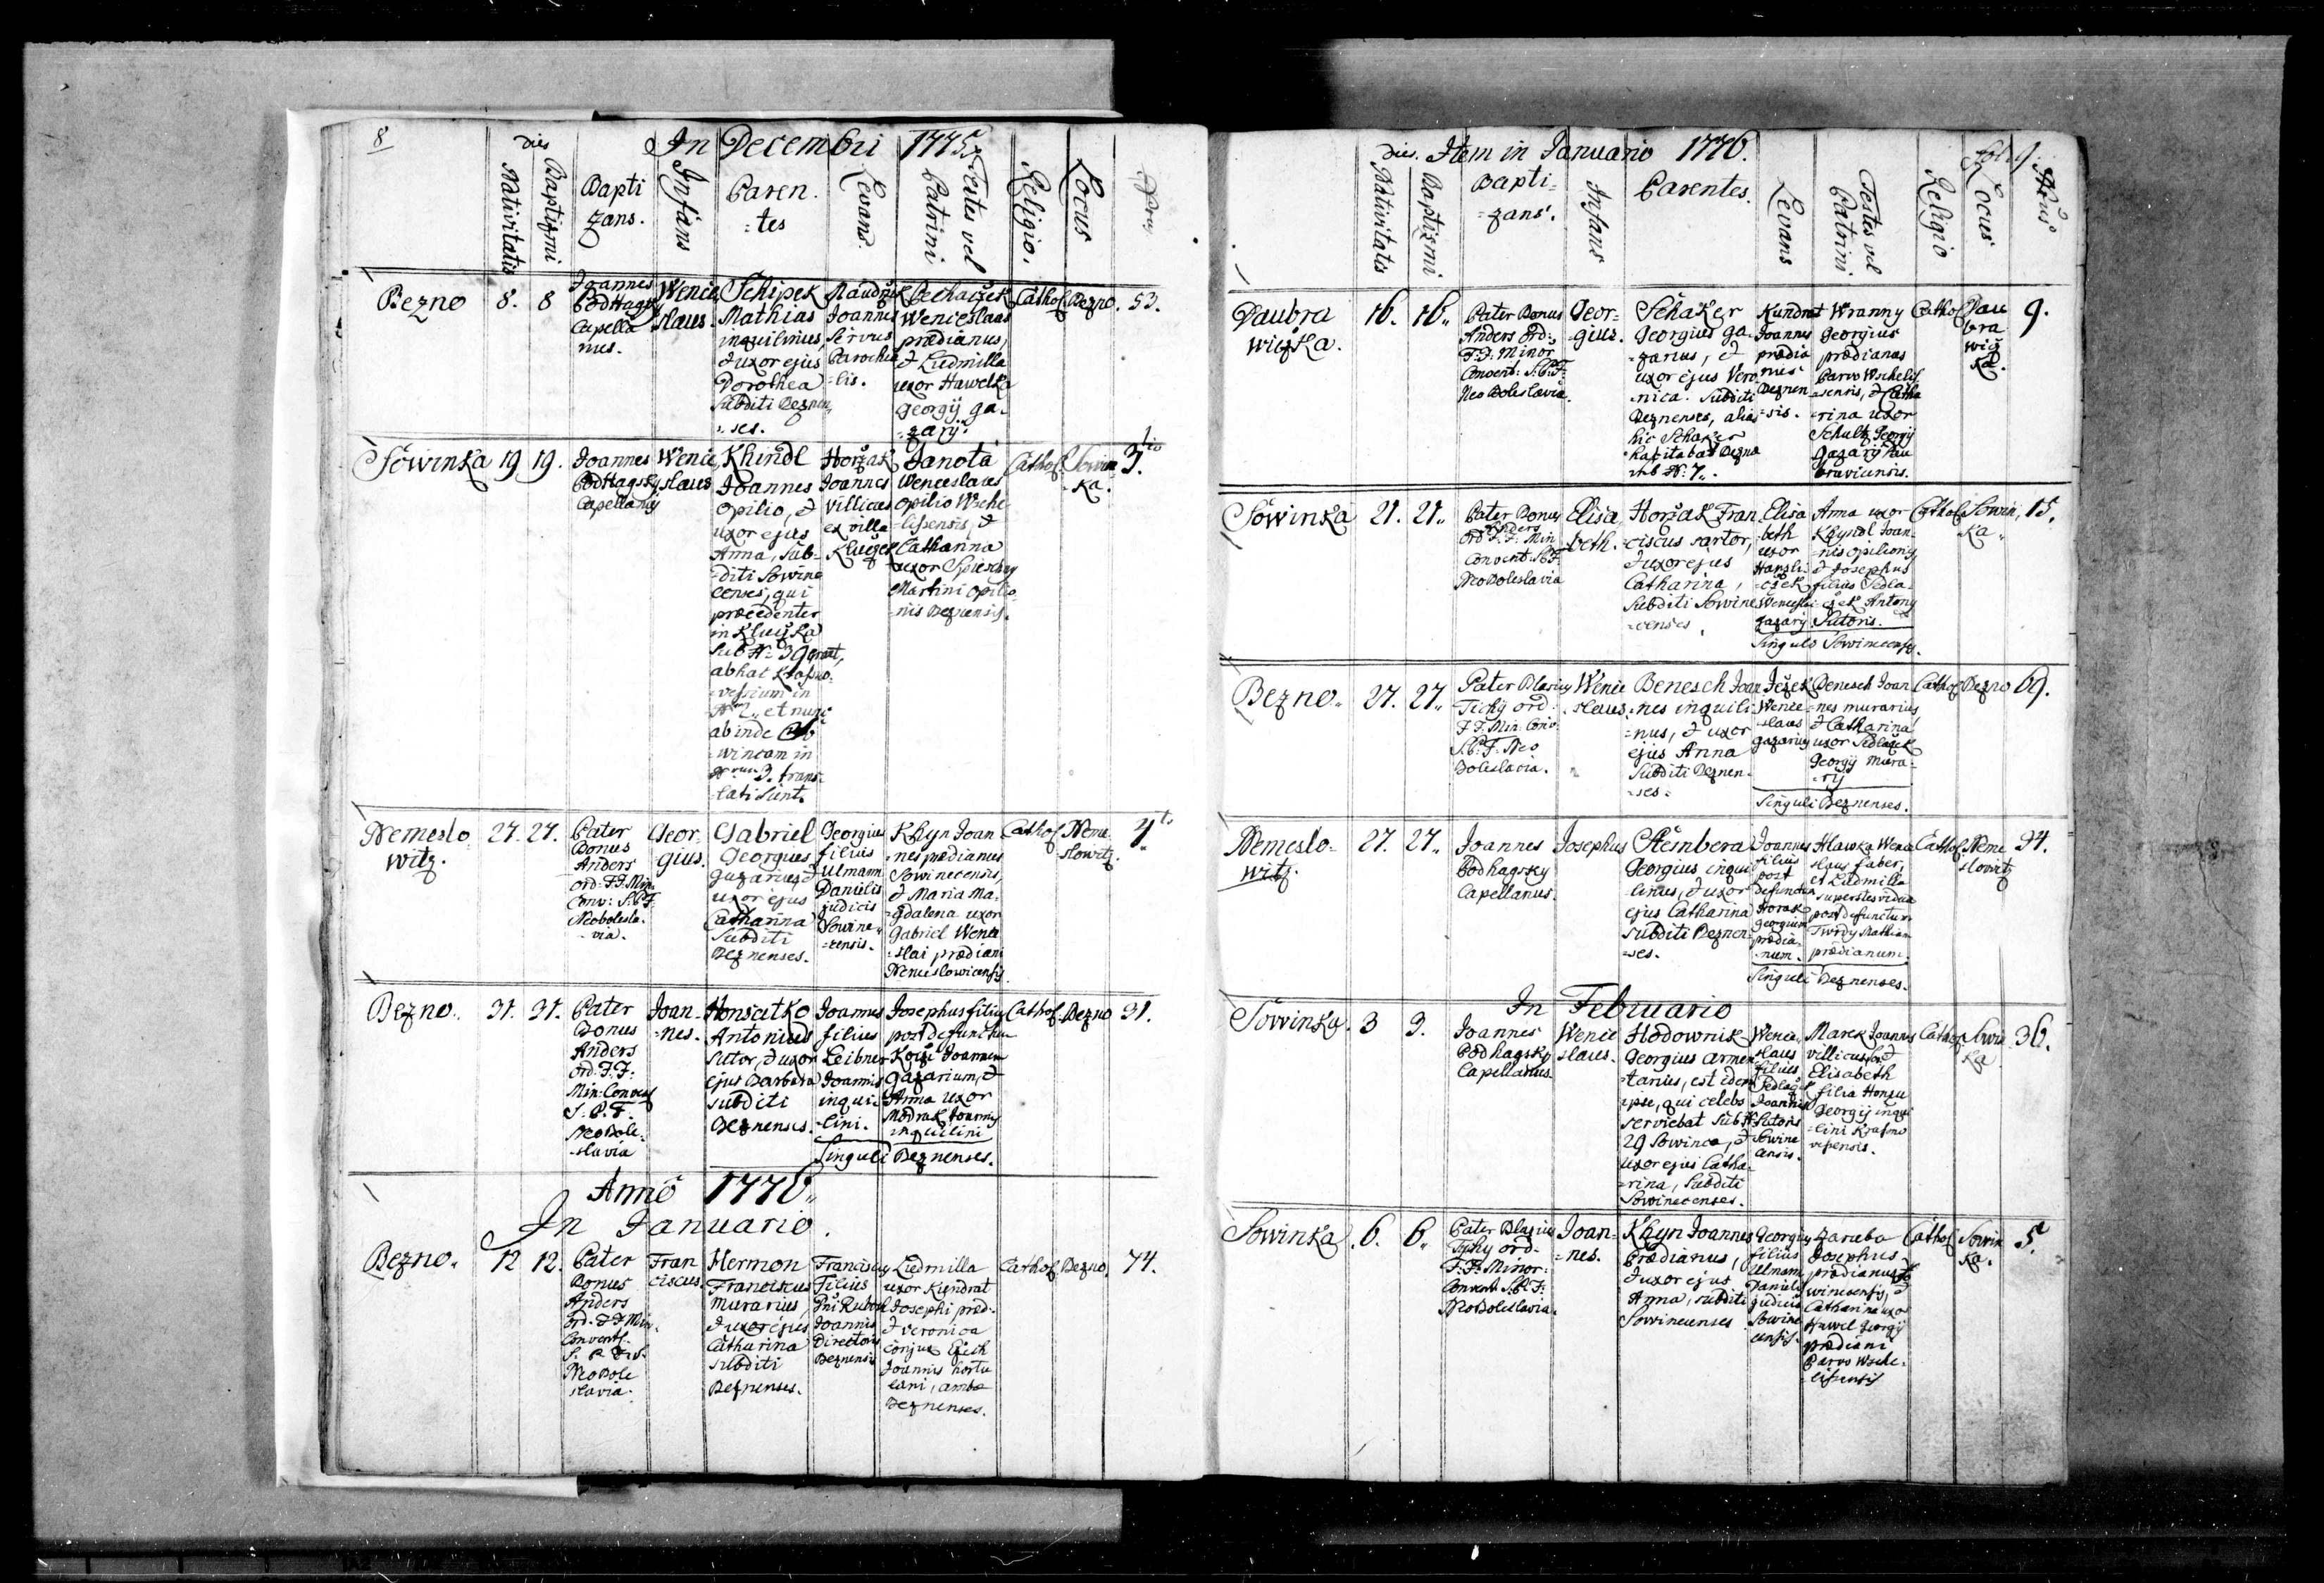 8
In Decembri 1775.
dies
Nativitatis
Baptizmi
Bapti
zans.
Infans
Paren
=tes
Levans.
Testes vel
Patrini
Religio.
Locus
Bezno
8.
8
Joannes
Podhagsky
Capella
nus.
Wence
slaus.
Schipek
Mathias
inquilinus,
& uxor ejus
Dorothea
Subditi Beznen
=ses.
Joannes
Servus
Parochia
=lis.
Wenceslaus
prædianus,
& Ludmilla
uxor Hawelka
Georgij ga-
=zarij.
Cathol
Bezno.
53.
Sowinka
19
19.
Joannes
Podhagsky
Capellanus
Wence
slaus
Khindl
Joannes
opilio, &
uxor ejus
Anna, Sub-
=diti Sowine
censes, qui
præcedenter
in Kluczka
sub No 39 erant,
et nunc
abinde
=wincam in
3. trans-
=lati sunt.
Horzak
Joannes
Villicus
ex villa
Kluczek
Janota
Wenceslaus
opilio Wsche
=lisensis, &
Catharina
uxor
Martini opilio-
=nis Beznensis.
Cathol.
Sowin
=ka.
3.tio
Nemeslo
witz.
27.
27.
Pater
Bonus
Anders
ord: F.F. Min.
Conv: S.P.F.
Neobolesla-
=via.
Geor-
gius.
Gabriel
Georgius
gazarius &
uxor ejus
Catharina
Subditi
Beznenses.
Georgius
filius
Ulmann
Danielis
judicis
Sowine-
=censis.
Khyn Joan
=nes prædianus
Sowinecensis,
& Maria Ma-
=gdalena uxor
Gabriel Wence
=slai prædiani
Nemeslowicensis
Cathol.
Neme
slowitz.
Bezno.
31.
31.
Pater
Bonus
Anders
ord: F.F:
Min: Convent
S. P. F.
Neobole-
=slavia
Joan-
=nes.
Honsatko
Antonius
sutor, & uxor
ejus Barbara
subditi
Beznenses.
Joannes
filius
Leibner
Joannis
inqui-
=lini.
Josephus filius
post defunctum
Joannem
gazarium, &
Anna uxor
Modrak Joannis
inquilini
Singuli Beznenses.
Cathol.
Bezno
31.
Anno 1776.
In Januario.
Bezno.
12
12.
Pater
Bonus
Anders
ord. F F Min.
Convent.
Neobole
slavia.
Fran
ciscus.
Hermon
Franciscus
murarius,
& uxor ejus
Catharina
subditi
Beznenses.
Franciscus
Filius
Joannis
Directoris
Beznensis
Ludmilla
uxor Kundrat
Josephi præd:
& Veronica
conjux
Joannis hortu
lani, ambæ
Beznenses.
Cathol.
Bezno.
74.
fol. 9.
dies. Item in Januario 1776.
Nativitatis
Baptizmi
Bapti=
=zans.
Infans
Parentes.
Levans
Testes vel
Patrini
Religio
Locus
Daubra
wiczka.
16.
16.
Pater Bonus
Anders ord:
F.F: Minor
Convent: S.P.F:
Neoboleslavia.
Geor=
=gius.
Schaker
Georgius ga-
=zarius, &
uxor ejus Vero
=nica. Subditi
Beznenses, alias
hic Schaker
habitabat Bezna
sub No: 7.
Kundrat
Joannes
prædia
nus
Beznen
=sis.
Wranny
Georgius
prædianus
Parvo Wschelis
=sensis, & Catha
=rina uxor
Schultz Georgij
gazarij Dau
braviensis.
Cathol
Dau
bra
wicz
ka.
9.
Sowinka
21.
21.
Pater Bonus
Anders
ord F.F: Min
Convent: S.P.F:
Neoboleslavia
Elisa
beth.
Horzak Fran
=ciscus sartor,
& uxor ejus
Catharina,
Subditi Sowine
=censes
Elisa
beth
uxor
Hanzli
=czek
Wenceslai
gazarij
Anna uxor
Khyndl Joan-
=nis opilionis
& Josephus
filius Sedla-
=czek Antonij
Sutoris.
Singuli Sowinecenses.
Cathol
Sowin
ka.
15.
Bezno.
27.
27.
Pater Blasius
Tichy ord:
F F: Min: Conv:
S.P.F. Neo
Boleslavia.
Wence
slaus.
Benesch Joan
=nes inquili
=nus, & uxor
ejus Anna
Subditi Beznen-
=ses.
Jezek
Wence
=slaus
gazarius
Benesch Joan
=nes murarius
& Catharina
uxor Sedlaczek
Georgij mura-
=rij
Singuli Beznenses.
Cathol
Bezno
69.
Nemeslo=
witz.
27.
27.
Joannes
Podhagsky
Capellanus.
Josephus
Stembera
Georgius inqui
linus, & uxor
ejus Catharina
Subditi Beznen-
=ses.
Joannes
filius
post
defunctum
Horak
Georgium
prædia-
num.
Hlawka Wence
slaus faber,
et Ludmilla
superstes vidua
post defunctum
Twrdy Mathiam
prædianum
Singuli Beznenses.
Cathol
Neme
slowitz
34.
In Februario
Sowinka.
3
3.
Joannes
Podhagsky
Capellanus.
Wence
slaus.
Hodownik
Georgius armen
tarius, est idem
ipse, qui celebs
serviebat sub No
29 Sowinca, &
uxor ejus Catha-
=rina, Subditi
Sowinecenses.
Wence-
slaus
filius
Sedlaczek
Joannis
Sutoris
Sowine
censis.
Marek Joannes
villicus, &
Elisabeth
filia Honzu
Georgij inqui
=lini Krasno
vesensis.
Cathol
Sowin
ka
36.
Sowinka.
6.
6.
Pater Blasius
Tychy ord-
F.F: Minor:
Convent S.P.F:
Neoboleslavia.
Joan-
=nes.
Khyn Joannes
Prædianus,
& uxor ejus
Anna, subditi
Sowinecenses
Georgius
filius
Ulmann
Danielis
judicis
Sowine
censis.
Zaruba
Josephus
prædianus So
winecensis, &
Catharina uxor
Hawel Georgij
prædiani
Parvo Wsche-
=lisensis
Cathol
Sowin
ka.
5.